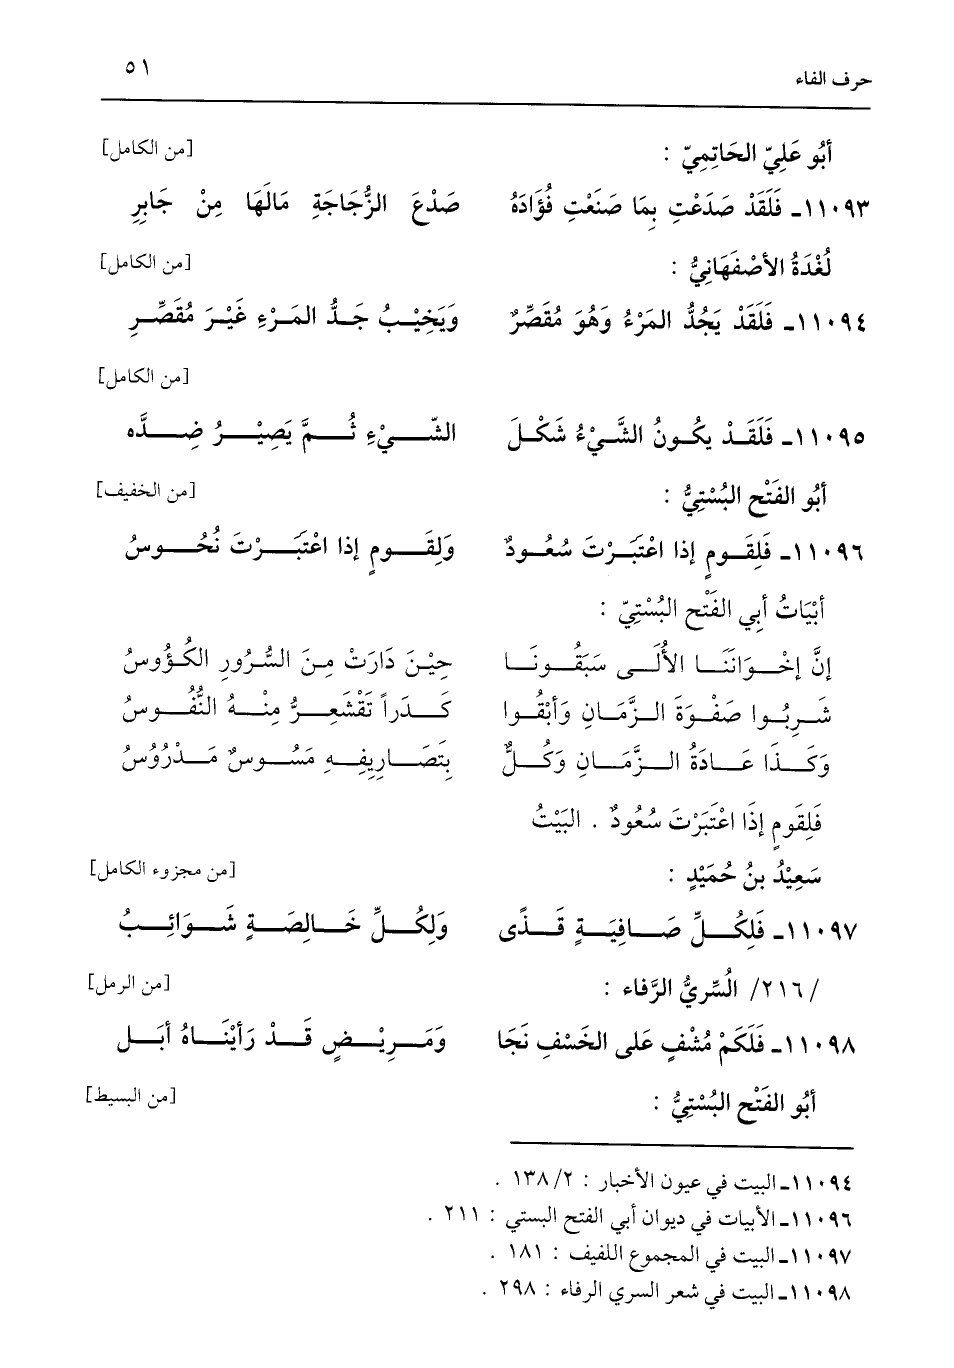 حرف الفاء ٥١
أَبُو عَلِيّ الحَاتِمِيّ : [من الكامل]
١١٠٩٣ـ فَلَقَدْ صَدَعْتِ بِمَا صَنَعْتِ فُؤَادَهُ صَدْعَ الزُّجَاجَةِ مَالَهَا مِنْ جَابِرِ
لُغْدَةُ الأصْفَهَانِيُّ : [من الكامل]
١١٠٩٤ـ فَلَقَدْ يَجُدُّ المَرْءُ وَهُوَ مُقَصِّرٌ وَيَخِيْبُ جَدُّ المَرْءِ غَيْرَ مُقَصِّرِ
[من الكامل]
١١٠٩٥ـ فَلَقَدْ يكُونُ الشَّيْءُ شَكْلَ الشّيْءِ ثُمَّ يَصِيْرُ ضِدَّه
أَبُو الفَتْح البُسْتِيُّ : [من الخفيف]
١١٠٩٦ـ فَلِقَومٍ إذا اعْتَبَرْتَ سُعُودٌ وَلِقَومٍ إذا اعْتَبَرْتَ نُحُوسُ
أَبْيَاتُ أبي الفَتْح البُسْتِيّ :
إنَّ إخْوَانَنَا الأُلَى سَبَقُونَا حِيْنَ دَارَتْ مِنَ السُّرُورِ الكُؤُوسُ
شَرِبُوا صَفْوَةَ الزَّمَانِ وَأبْقُوا كَدَراً تَقْشَعِرُّ مِنْهُ النُّفُوسُ
وَكَذَا عَادَةُ الزَّمَانِ وَكُلٌّ بِتَصَارِيفِهِ مَسُوسٌ مَدْرُوْسُ
فَلِقَومٍ إِذَا اعْتَبَرْتَ سُعُودٌ . البَيْتُ
سَعِيْدُ بنُ حُمَيْدٍ : [من مجزوء الكامل]
١١٠٩٧ـ فَلِكُلِّ صَافِيَةٍ قَذًى وَلِكُلِّ خَالِصَةٍ شَوَائِبُ
/٢١٦/ السِّريُّ الرَّفاء : [من الرمل]
١١٠٩٨ـ فَلَكَمْ مُشْفٍ عَلى الخَسْفِ نَجَا وَمَرِيْضٍ قَدْ رَأَيْنَاهُ أبَل
أَبُو الفَتْح البُسْتِيُّ : [من البسيط]
١١٠٩٤ـ البيت في عيون الأخبار : ٢/ ١٣٨ .
١١٠٩٦ـ الأبيات في ديوان أبي الفتح البستي : ٢١١ .
١١٠٩٧ـ البيت في المجموع اللفيف : ١٨١ .
١١٠٩٨ـ البيت في شعر السري الرفاء : ٢٩٨ .